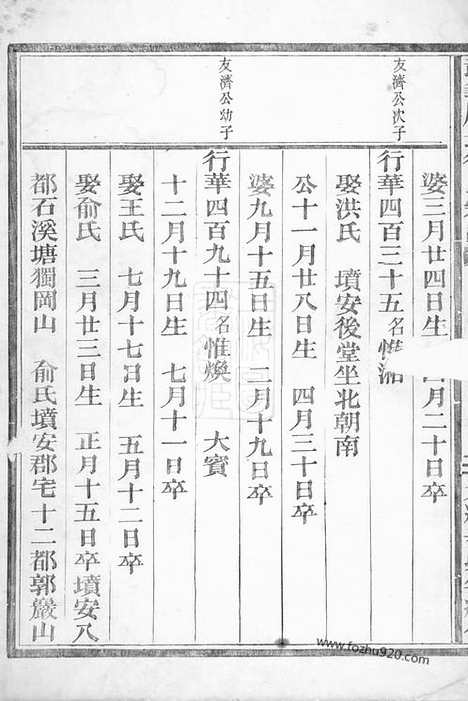 婆三月廿四日生 月二十日卒
友濟公次子
行華四百三十五名惟湘
娶洪氏 墳安後堂坐北朝南
公十一月廿八日生 四月三十日卒
婆九月十五日生 二月十九日卒
友濟公幼子
行華四百九十四名惟煥 大賓
十二月十九日生 七月十一日卒
娶王氏 七月十七日生 五月十二日卒
娶俞氏 三月廿三日生 正月十五日卒墳安八
都石溪塘獨岡山 俞氏墳安郡宅十二都郭巖山
www.fozhu920.com